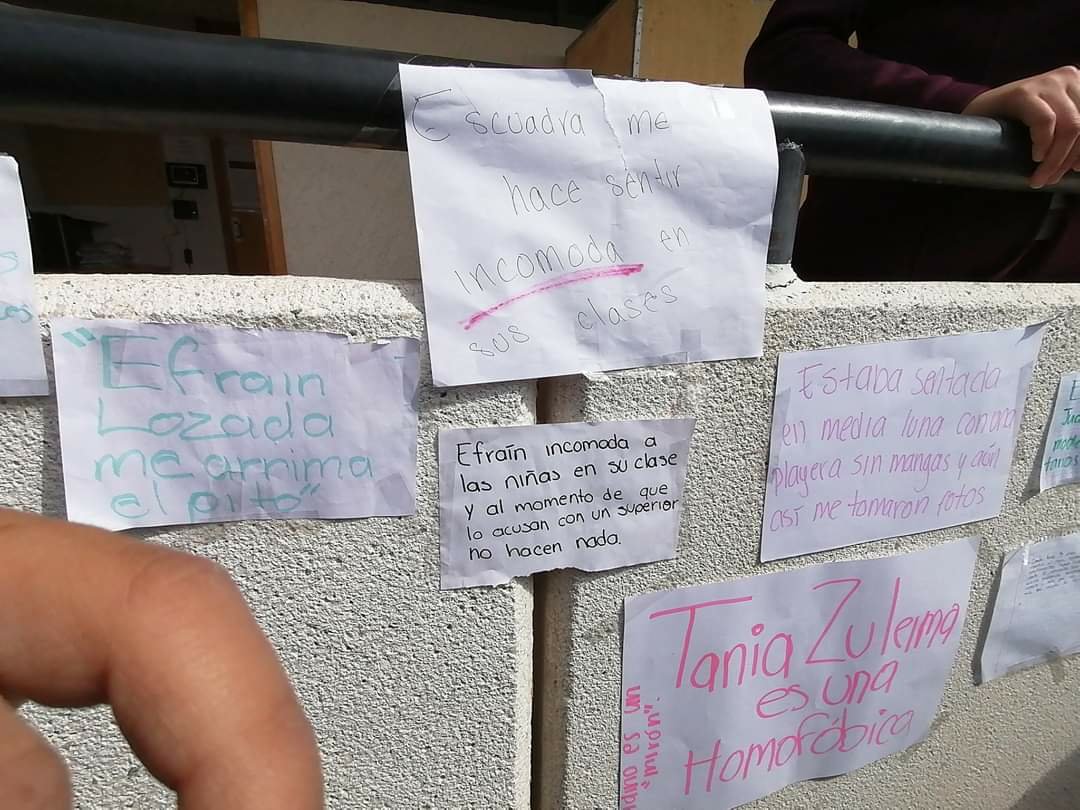 Escuadra me
hace sentir
incomoda en
sus clases
"Efrain
Lozada
me arrima
el pito"
Efraín incomoda a
las niñas en su clase
y al momento de que
lo acusan con un superior
no hacen nada.
Estaba sentada
en media luna con una
playera sin mangas y aún
así me tomaron fotos
Tania Zuleima
es una
Homofóbica
es un
"mirón".